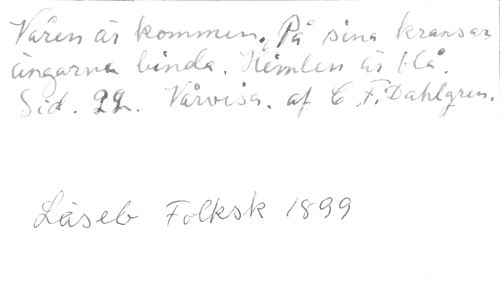 Våren är kommen. På sina kransar
ängarna binda. Himlen är blå.
Sid. 22. Vårvisa. af C. F. Dahlgren.
Läseb Folksk 1899